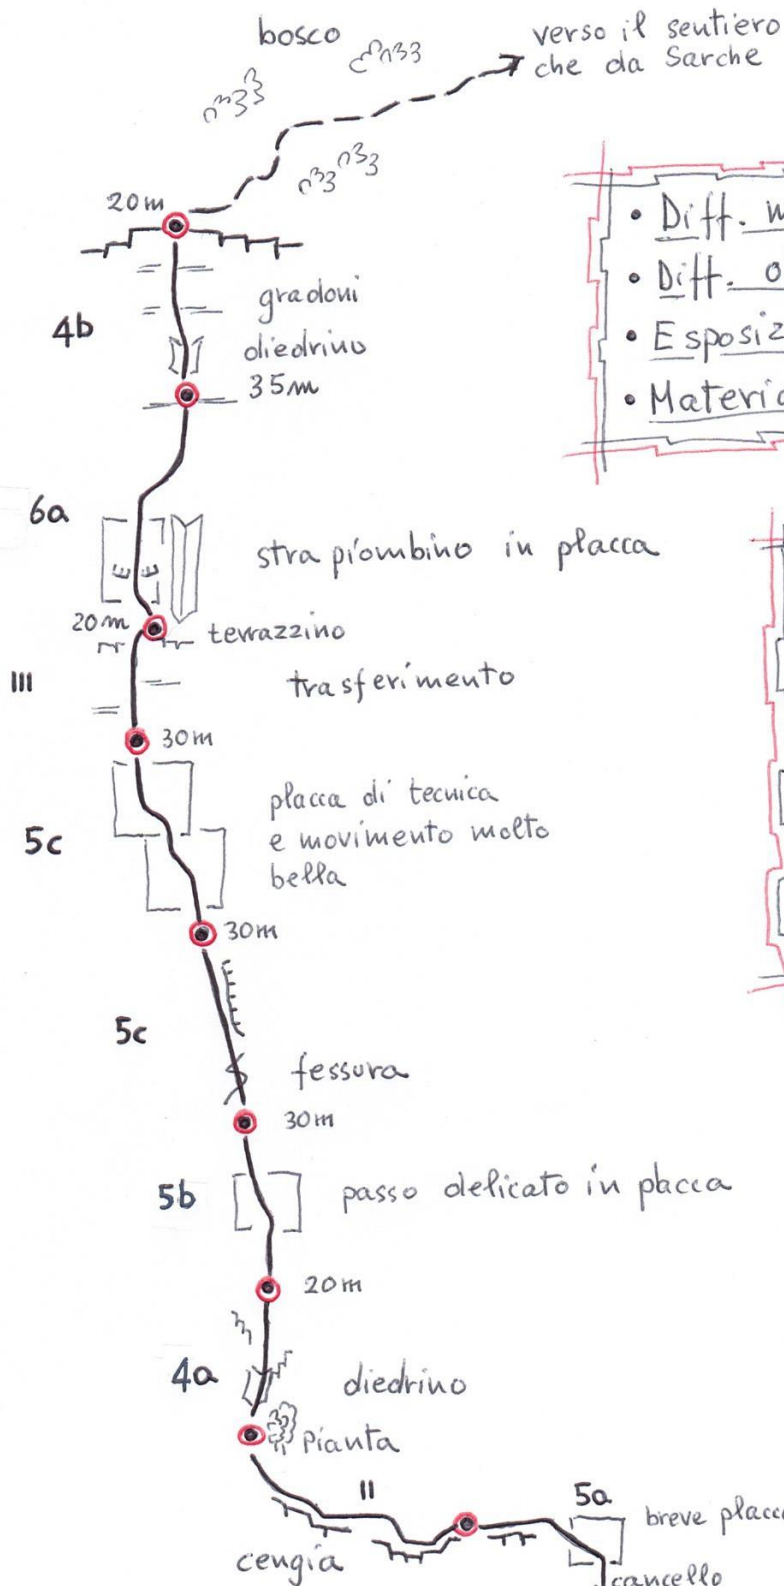 bosco
verso il sentiero
che da Sarche
20m
• Diff.
• Diff.
•
•
4b
gradoni
diedrino
35m
6a
strapiombino in placca
20m
terrazzino
III
trasferimento
30m
5c
placca di tecnica
e movimento molto
bella
30m
5c
fessura
30m
5b
passo delicato in placca
20m
4a
diedrino
pianta
II
5a
breve placca
cengia
cancello